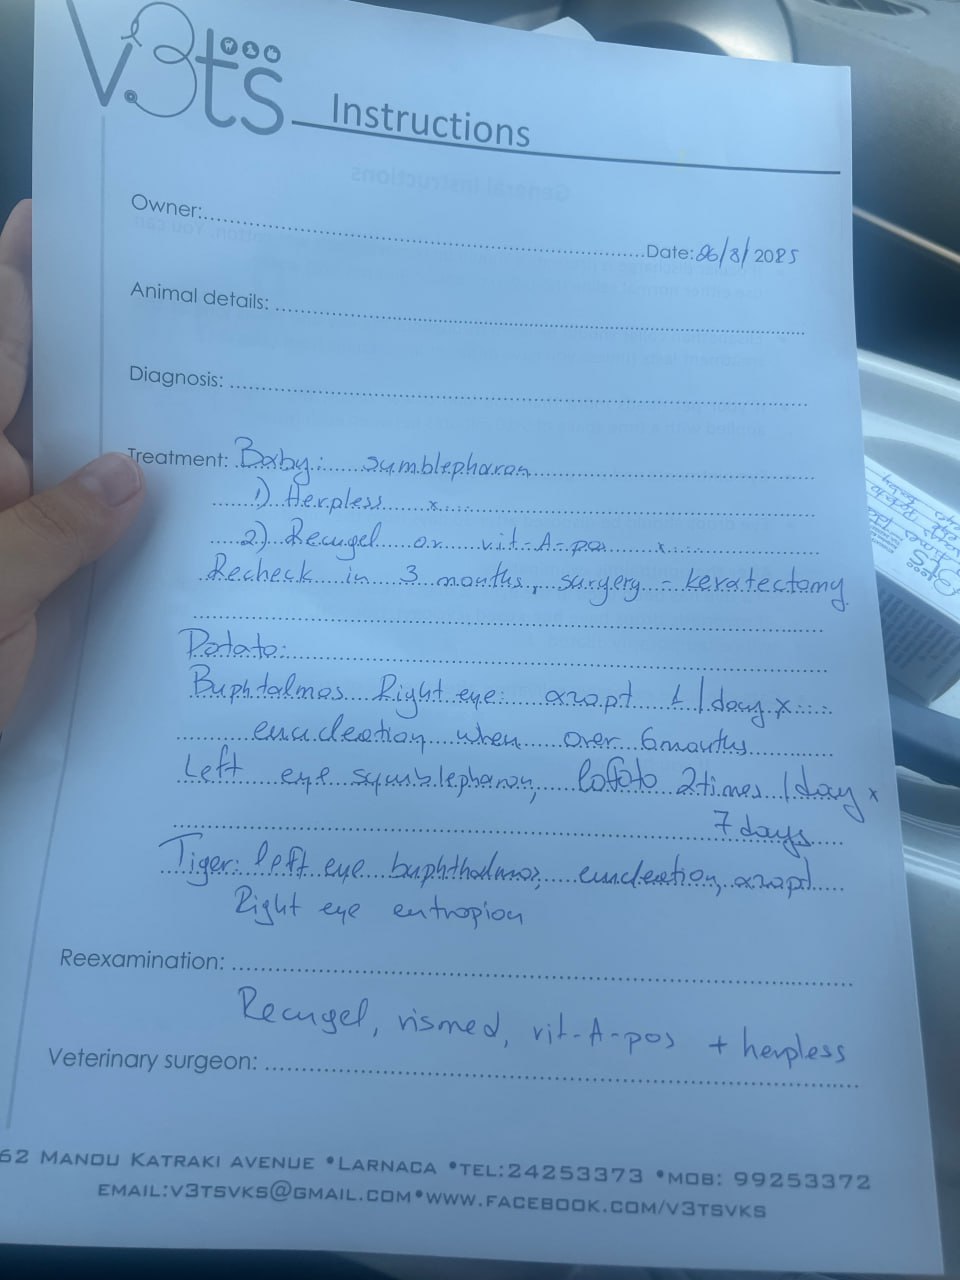 V3ts
Instructions
Owner:
Date: 26/8/2025
Animal details:
Diagnosis:
Treatment: Baby: symblepharon
1) Herpless x
2) Recugel or vit-A-pos x
Recheck in 3 months, surgery - keratectomy
Potato:
Buphtalmos Right eye: azopt 1/day x
enucleation when over 6months
Left eye symblepharon, lofoto 2times/day x
7 days
Tiger: left eye buphthalmos, enucleation, azopt
Right eye entropion
Reexamination:
Recugel, vismed, vit-A-pos + herpless
Veterinary surgeon:
62 MANOU KATRAKI AVENUE •LARNACA •TEL:24253373 •MOB: 99253372
EMAIL:V3TSVKS@GMAIL.COM•WWW.FACEBOOK.COM/V3TSVKS